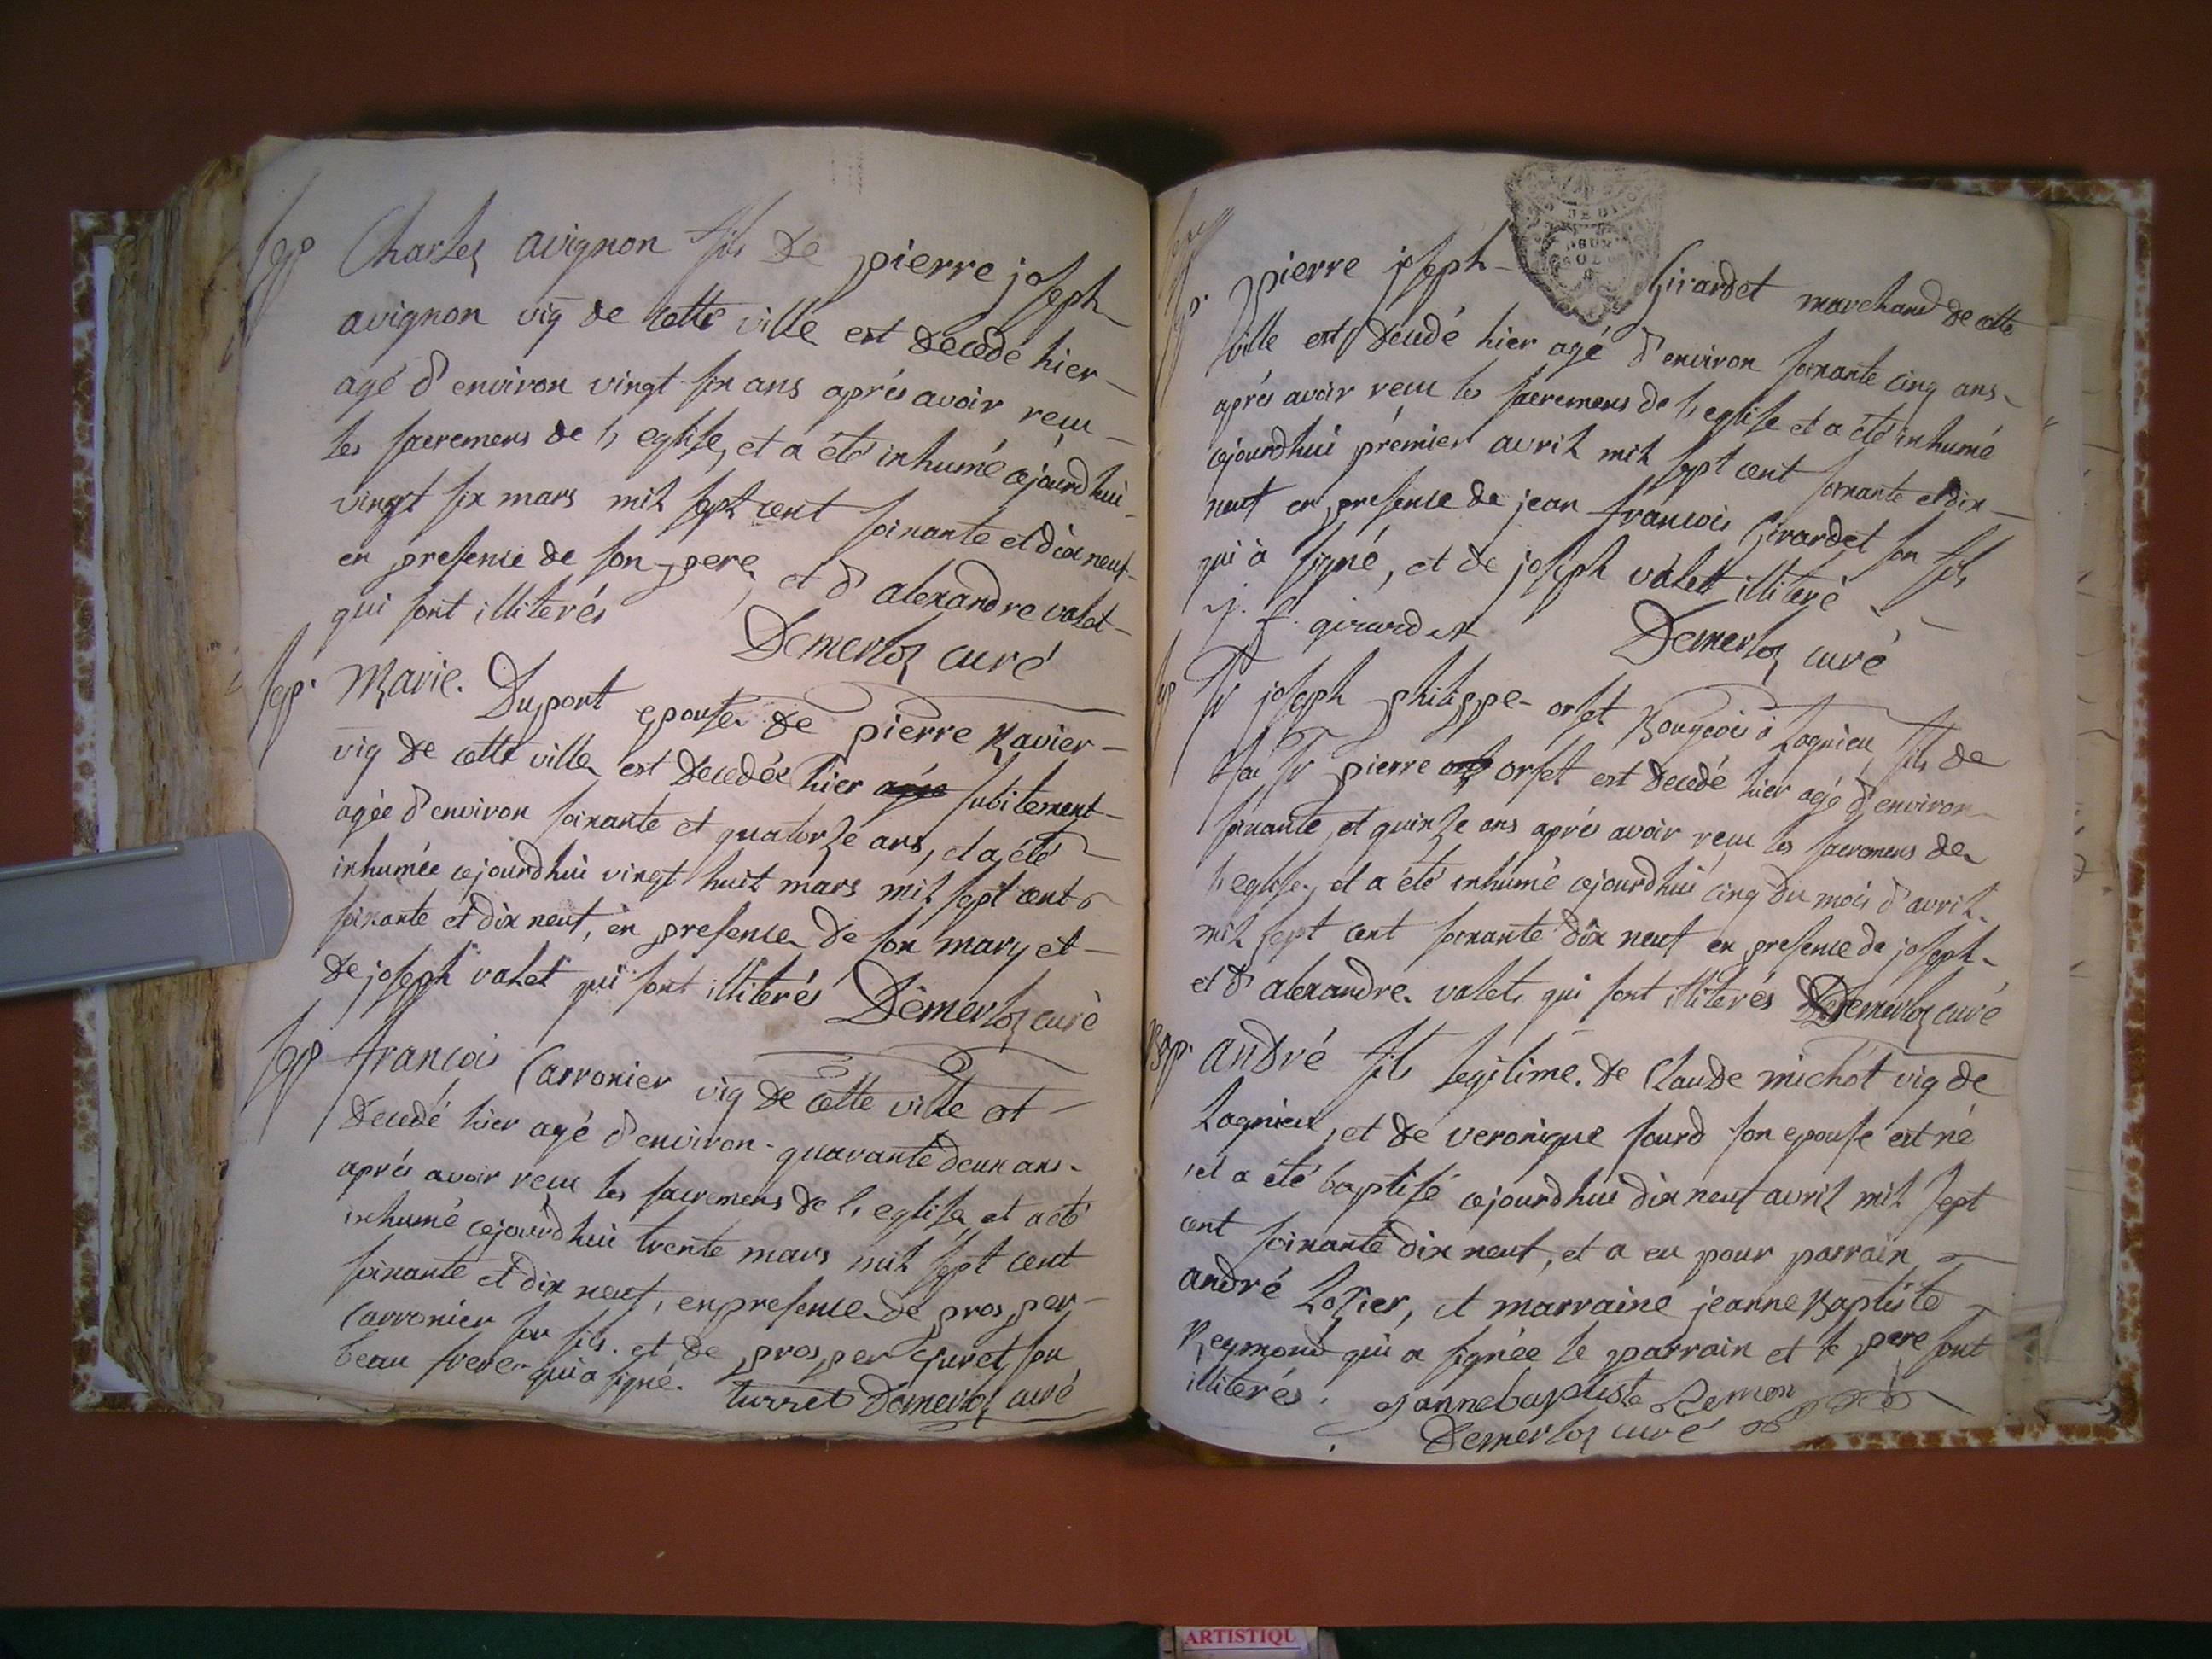 Sep Charles avignon fils de pierre joseph
avignon vig de cette ville est decedé hier
agé d'environ vingt six ans aprés avoir reçu
les sacremens de l'eglise, et a été inhumé cejourdhui
vingt six mars mil sept cent soixante et dix neuf
en presence de son pere, et d'alexandre valet
qui sont illiterés Demerloz curé
Sep. Marie Duport epouse de pierre Ravier
vig de cette ville est decedée hier subitement
agée d'environ soixante et quatorze ans, et a été
inhumée cejourdhui vingt huit mars mil sept cent
soixante et dix neuf, en presence de son mary et
de joseph valet qui sont illiterés Demerloz curé
Sep francois Carronier vig de cette ville est
decedé hier agé d'environ quarante deux ans
aprés avoir reçu les sacremens de l'eglise et a été
inhumé cejourdhui trente mars mil sept cent
soixante et dix neuf, en presence de prosper
Carronier son fils et de prosper Turet son
beau frere qui a signé. turret Demerloz curé
Sep. pierre joseph Girardet marchand de cette
ville est decedé hier agé d'environ soixante cinq ans
aprés avoir reçu les sacremens de l'eglise et a été inhumé
cejourdhui prémier avril mil sept cent soixante et dix
neuf en presence de jean francois Girardet son fils
qui à signé, et de joseph valet illiteré
j. f. girardet Demerloz curé
Sep Sr joseph philippe orset Bourgeois à Lagnieu, fils de
feu Sr pierre orset est decedé hier agé d'environ
soixante et quinze ans aprés avoir reçu les sacremens de
l'eglise, et a été inhumé cejourdhui cinq du mois d'avril
mil sept cent soixante dix neuf en presence de joseph
et d'alexandre valet qui sont illiterés Demerloz curé
Bap. André fils legitime de Claude michot vig de
Lagnieu, et de veronique sourd son epouse est né
et a été baptisé cejourdhui dix neuf avril mil sept
cent soixante dix neuf, et a eu pour parrain
andré Lozier, et marraine jeanne Baptiste
Reymond qui a signée le parrain et le pere sont
illiterés. jannebaptiste Remon
Demerloz curé
ARTISTIQU